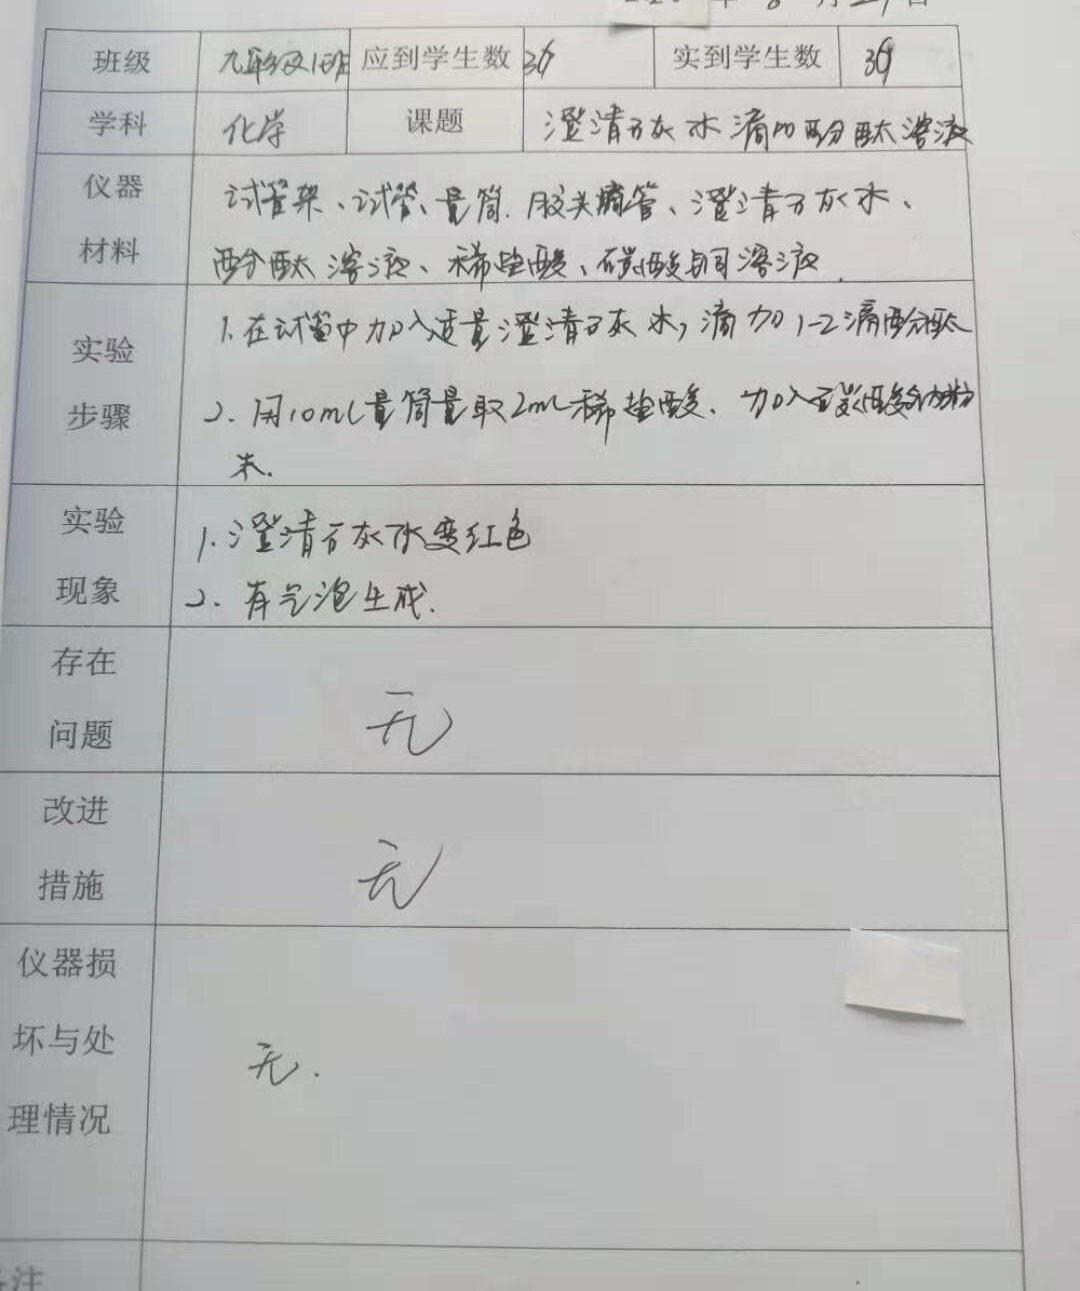 年 8 月 21 日
班级 九年级1班 应到学生数 36 实到学生数 36
学科 化学 课题 澄清石灰水滴加酚酞溶液
仪器 试管架、试管、量筒、胶头滴管、澄清石灰水、
材料 酚酞溶液、稀盐酸、碳酸钠溶液
实验 1.在试管中加入适量澄清石灰水,滴加1-2滴酚酞
步骤 2.用10mL量筒量取2mL稀盐酸、加入碳酸钠粉
末.
实验 1.澄清石灰水变红色
现象 2.有气泡生成.
存在
问题 无
改进
措施 无
仪器损
坏与处 无.
理情况
注